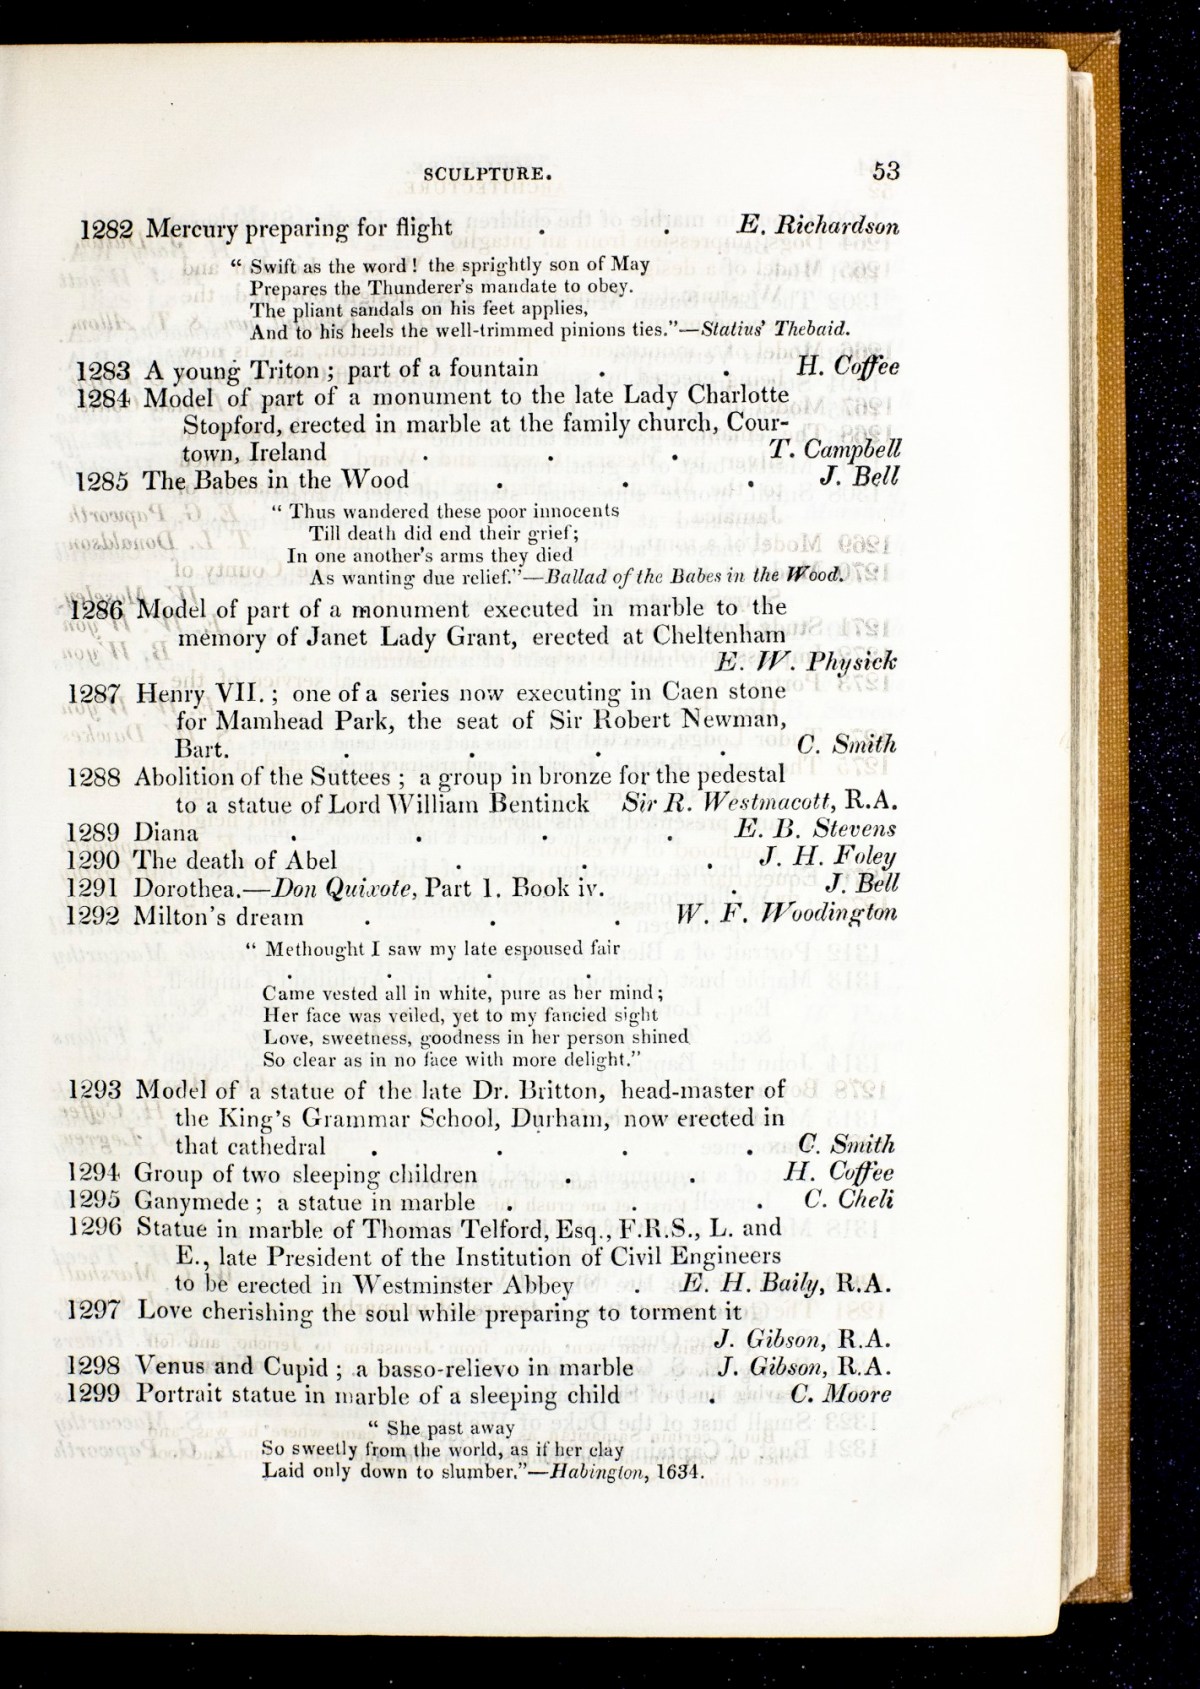 SCULPTURE. 53
1282 Mercury preparing for flight . . E. Richardson
“ Swift as the word ! the sprightly son of May
Prepares the Thunderer's mandate to obey.
The pliant sandals on his feet applies,
And to his heels the well-trimmed pinions ties.”—Statius' Thebaid.
1283 A young Triton ; part of a fountain . . H. Coffee
1284 Model of part of a monument to the late Lady Charlotte
Stopford, erected in marble at the family church, Cour-
town, Ireland . . . T. Campbell
1285 The Babes in the Wood . . . J. Bell
“ Thus wandered these poor innocents
Till death did end their grief;
In one another's arms they died
As wanting due relief.”—Ballad of the Babes in the Wood.
1286 Model of part of a monument executed in marble to the
memory of Janet Lady Grant, erected at Cheltenham
E. W. Physick
1287 Henry VII. ; one of a series now executing in Caen stone
for Mamhead Park, the seat of Sir Robert Newman,
Bart. . . . C. Smith
1288 Abolition of the Suttees ; a group in bronze for the pedestal
to a statue of Lord William Bentinck Sir R. Westmacott, R.A.
1289 Diana . . . . E. B. Stevens
1290 The death of Abel . . . J. H. Foley
1291 Dorothea.—Don Quixote, Part 1. Book iv. . J. Bell
1292 Milton's dream . . . W. F. Woodington
“ Methought I saw my late espoused fair
. . . .
Came vested all in white, pure as her mind ;
Her face was veiled, yet to my fancied sight
Love, sweetness, goodness in her person shined
So clear as in no face with more delight.”
1293 Model of a statue of the late Dr. Britton, head-master of
the King's Grammar School, Durham, now erected in
that cathedral . . . . C. Smith
1294 Group of two sleeping children . . H. Coffee
1295 Ganymede ; a statue in marble . . . C. Cheli
1296 Statue in marble of Thomas Telford, Esq., F.R.S., L. and
E., late President of the Institution of Civil Engineers
to be erected in Westminster Abbey . E. H. Baily, R.A.
1297 Love cherishing the soul while preparing to torment it
J. Gibson, R.A.
1298 Venus and Cupid ; a basso-relievo in marble J. Gibson, R.A.
1299 Portrait statue in marble of a sleeping child . C. Moore
“ She past away
So sweetly from the world, as if her clay
Laid only down to slumber.”—Habington, 1634.